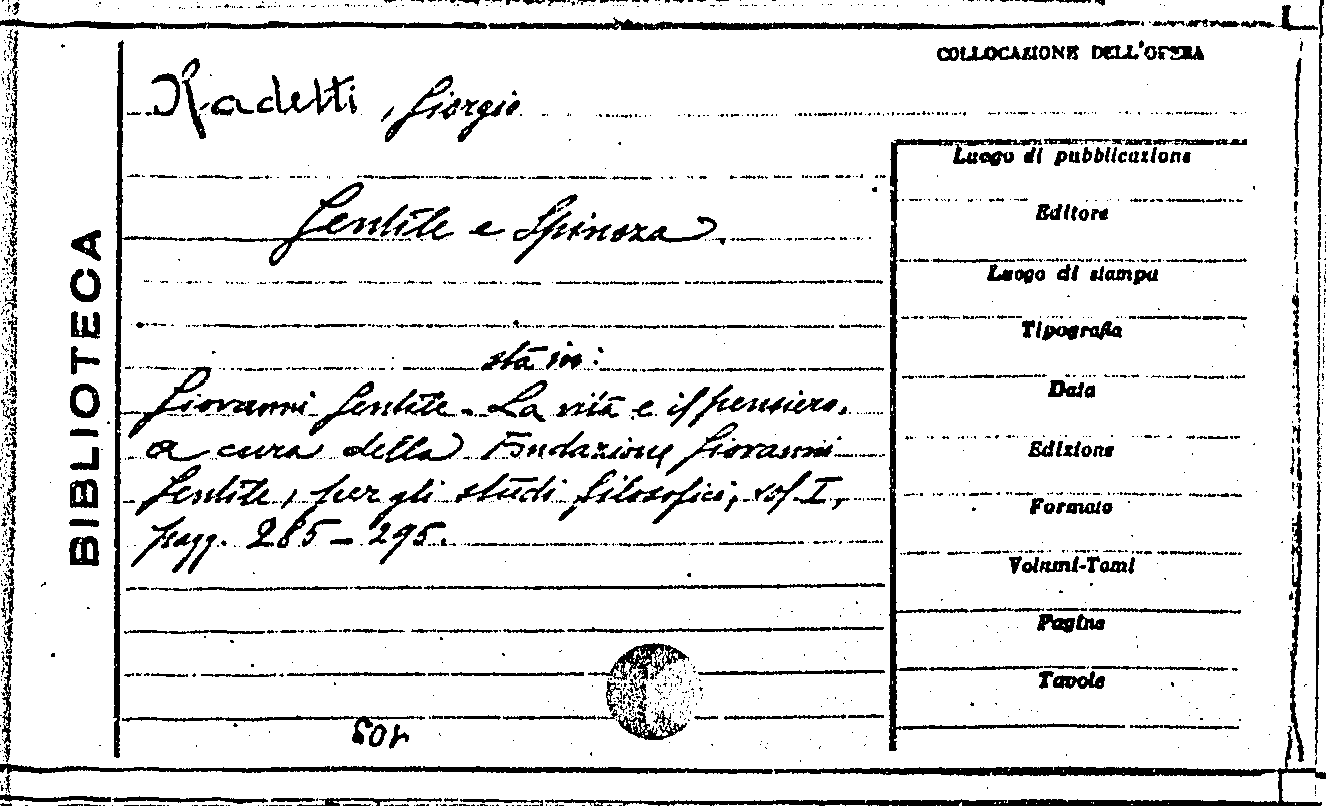 COLLOCAZIONE DELL'OPERA
Radetti, Giorgio
Gentile e Spinoza.
sta in:
Giovanni Gentile - La vita e il pensiero,
a cura della Fondazione Giovanni
Gentile, per gli studi filosofici, vol. I,
pagg. 285-295.
BIBLIOTECA
Luogo di pubblicazione
Editore
Luogo di stampa
Tipografia
Data
Edizione
Formato
Volumi-Tomi
Pagine
Tavole